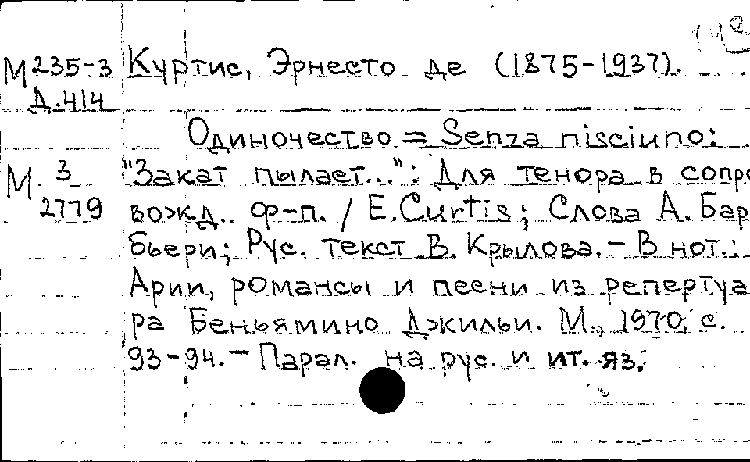 М 235-3 Куртис, Эрнесто де (1875-1937).
Д.414
Одиночество = Senza nisciuno:
М 3 "Закат пылает...": Для тенора в сопро
2779 вожд. ф-п. / E.Curtis; Слова А. Бар
бьери; Рус. текст В. Крылова. - В нот.:
Арии, романсы и песни из репертуа
ра Беньямино Джильи. М., 1970, с.
93-94. - Парал. на рус. и ит. яз.